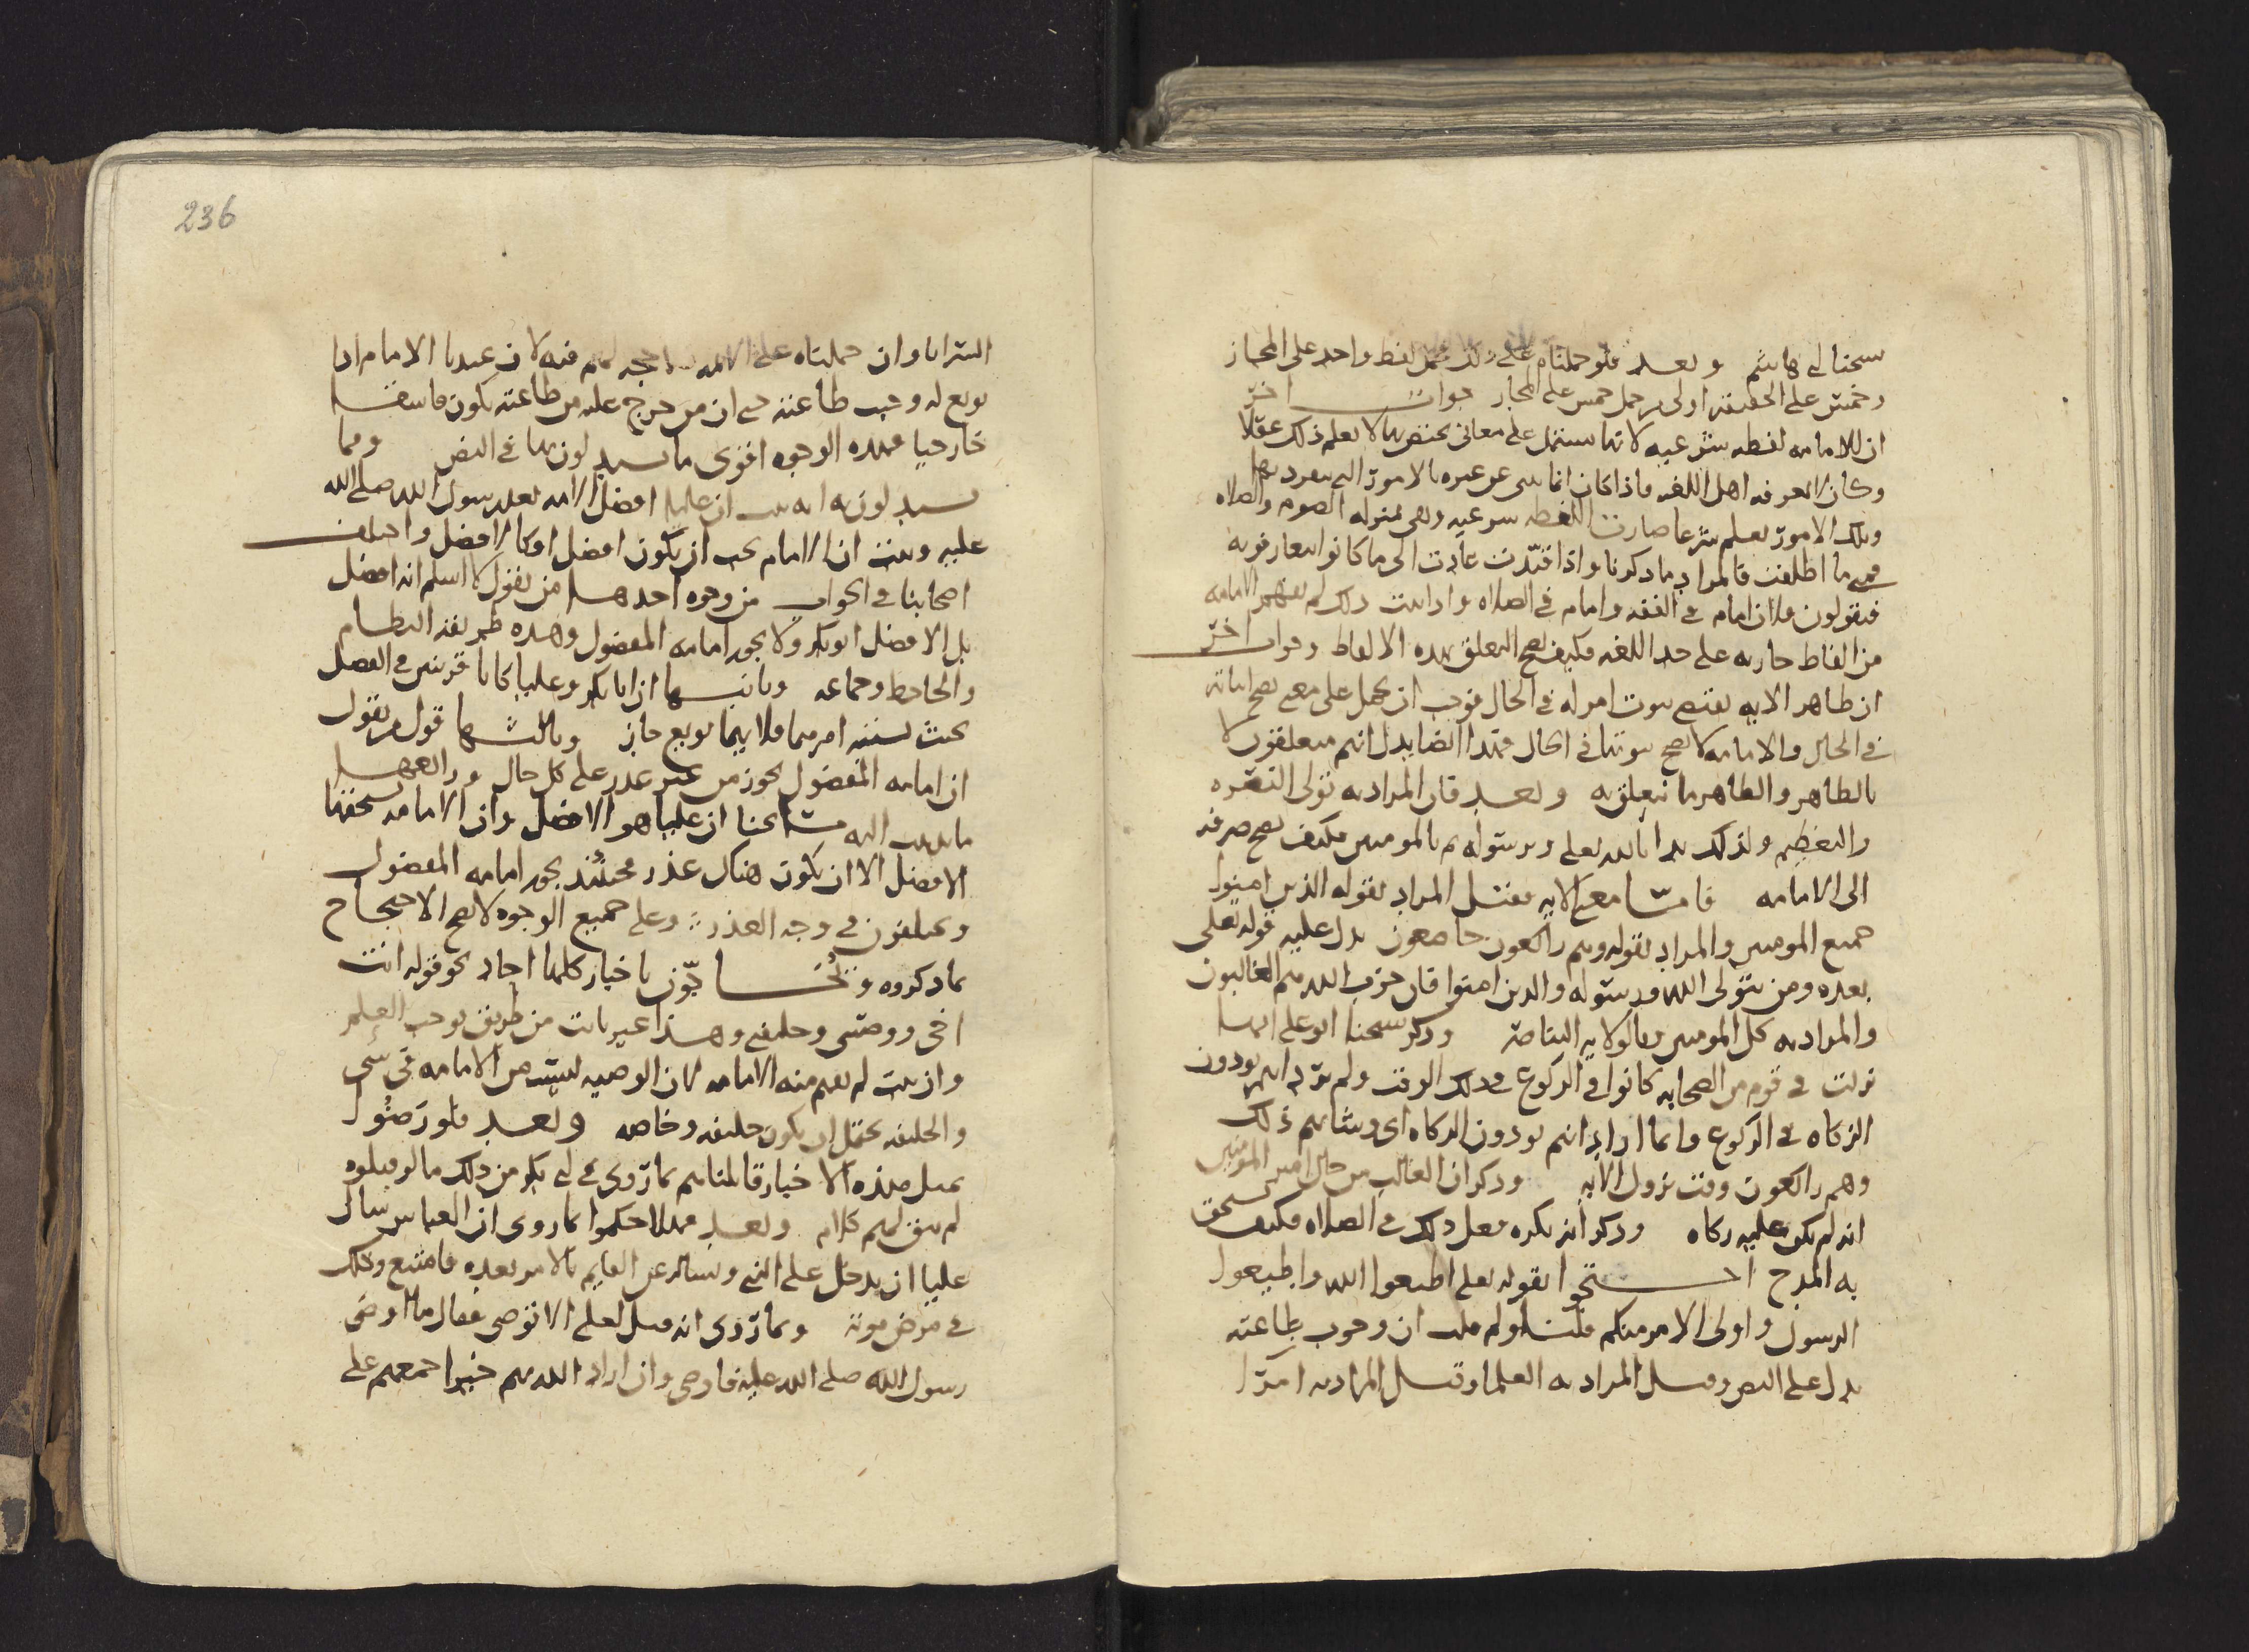 شيخنا ابي هاشم وبعد فلو حملناه على ذلك حمل لفظ واحد على المجاز
وخمس على الحقيقة اولى من حمل خمس على المجاز جواب اخر
ان الامامه لفظه شرعيه لانها تشتمل على معانى يختص بها لا يعلم ذلك عقلا
وكان لا يعرفه اهل اللغه فاذا كان انما ينبي عن غيره بالامور التي ينفرد بها
وتلك الامور تعلم شرعا صارت اللفظه شرعيه وهى بمنزله الصوم والصلاه
فمتى ما اطلقت فالمراد ما ذكرنا واذا قيدت عادت الى ما كانوا يتعارفونه
فيقولون فلان امام في الفقه وامام في الصلاه واذا ثبت ذلك لم يفهم الامامه
من الفاظ جاريه على حد اللغه فكيف يصح التعلق بهذه الالفاظ وجواب اخر
ان ظاهر الايه يقتضي ثبوت امر له في الحال فوجب ان يحمل على معنى يصح اثباته
في الحال والامامه لا يصح ثبوتها في الحال فهذا ايضا يدل انهم متعلقون لا
بالظاهر والظاهر ما نتعلق به وبعد فان المراد به تولى النصره
والتعظيم ولذلك بدا بالله تعلى وبرسوله ثم بالمومنين فكيف يصح صرفه
الى الامامه فاما معنى الايه فقيل المراد بقوله الذين امنوا
جميع المومنين والمراد بقوله وهم راكعون خاضعون يدل عليه قوله تعلى
بعده ومن يتولى الله ورسوله والذين امنوا فان حزب الله هم الغالبون
والمراد به كل المومنين وبالولايه النصره وذكر شيخنا ابو على انها
نزلت في قوم من الصحابه كانوا في الركوع في ذلك الوقت ولم يرد انهم يودون
الزكاه في الركوع وانما اراد انهم يودون الزكاه اى وشانهم ذلك
وهم راكعون وقت نزول الايه وذكر ان الغالب من حال امير المومنين
انه لم يكن عليه زكاه وذكر انه يكره فعل ذلك في الصلاه فكيف يستحق
به المدح احتجوا بقوله تعلى اطيعوا الله واطيعوا
الرسول واولى الامر منكم قلنا ولم قلت ان وجوب طاعته
يدل على النص وقيل المراد به العلما وقيل المراد به امرا
236
السرايا وان حملناه على الائمه فلا حجه لهم فيه لان عندنا الامام اذا
بويع له وجب طاعته حتى ان من خرج عليه من طاعته يكون فاسقا
خارجيا فهذه الوجوه اقوى ما يستدلون بها في النص ومما
يستدلون به انه ثبت ان عليا افضل الامه بعد رسول الله صلى الله
عليه وثبت ان الامام يجب ان يكون افضل او كالافضل واختلف
اصحابنا في الجواب من وجوه احدها من يقول لا اسلم انه افضل
بل الافضل ابو بكر ولا يجوز امامه المفضول وهذه طريقه النظام
والجاحظ وجماعه وثانيها ان ابا بكر وعليا كانا قرينين في الفضل
بحيث يشتبه امرهما فلا ايهما بويع جاز وثالثها قول من يقول
ان امامه المفضول يجوز من غير عذر على كل حال ورابعها
ما يذهب اليه مشايخنا ان عليا هو الافضل وان الامامه يستحقها
الافضل الا ان يكون هناك عذر فحينئذ يجوز امامه المفضول
ويختلفون في وجه العذر وعلى جميع الوجوه لا يصح الاحتجاج
بما ذكروه ويحاجّون باخبار كلها احاد نحو قوله انت
اخى ووصيى وخليفتي وهذا غير ثابت من طريق يوجب العلم
وان ثبت لم يفهم منه الامامه لان الوصيه ليست من الامامه في شى
والخليفه يحتمل ان يكون خليفه وخاصه وبعد فلو رضوا
بمثل هذه الاخبار قابلناهم بما روى في ابى بكر من ذلك ما لو قبلوه
لم يبق لهم كلام وبعد فهلا حكموا بما روى ان العباس سال
عليا ان يدخل على النبي ويساله عن القايم بالامر بعده فامتنع وذلك
في مرض موته وبما روى انه قيل لعلى الا توصى فقال ما اوصى
رسول الله صلى الله عليه فاوصى وان اراد الله بهم خيرا جمعهم على